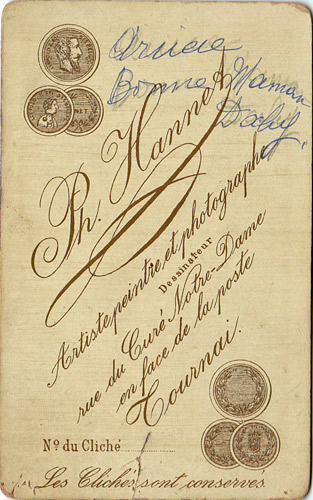 Bonne Maman
Ph. Hannet
Artiste peintre, et photographe
Dessinateur
rue du Curé Notre-Dame
en face de la poste
Tournai.
Nº du Cliché
Les Clichés sont conservés